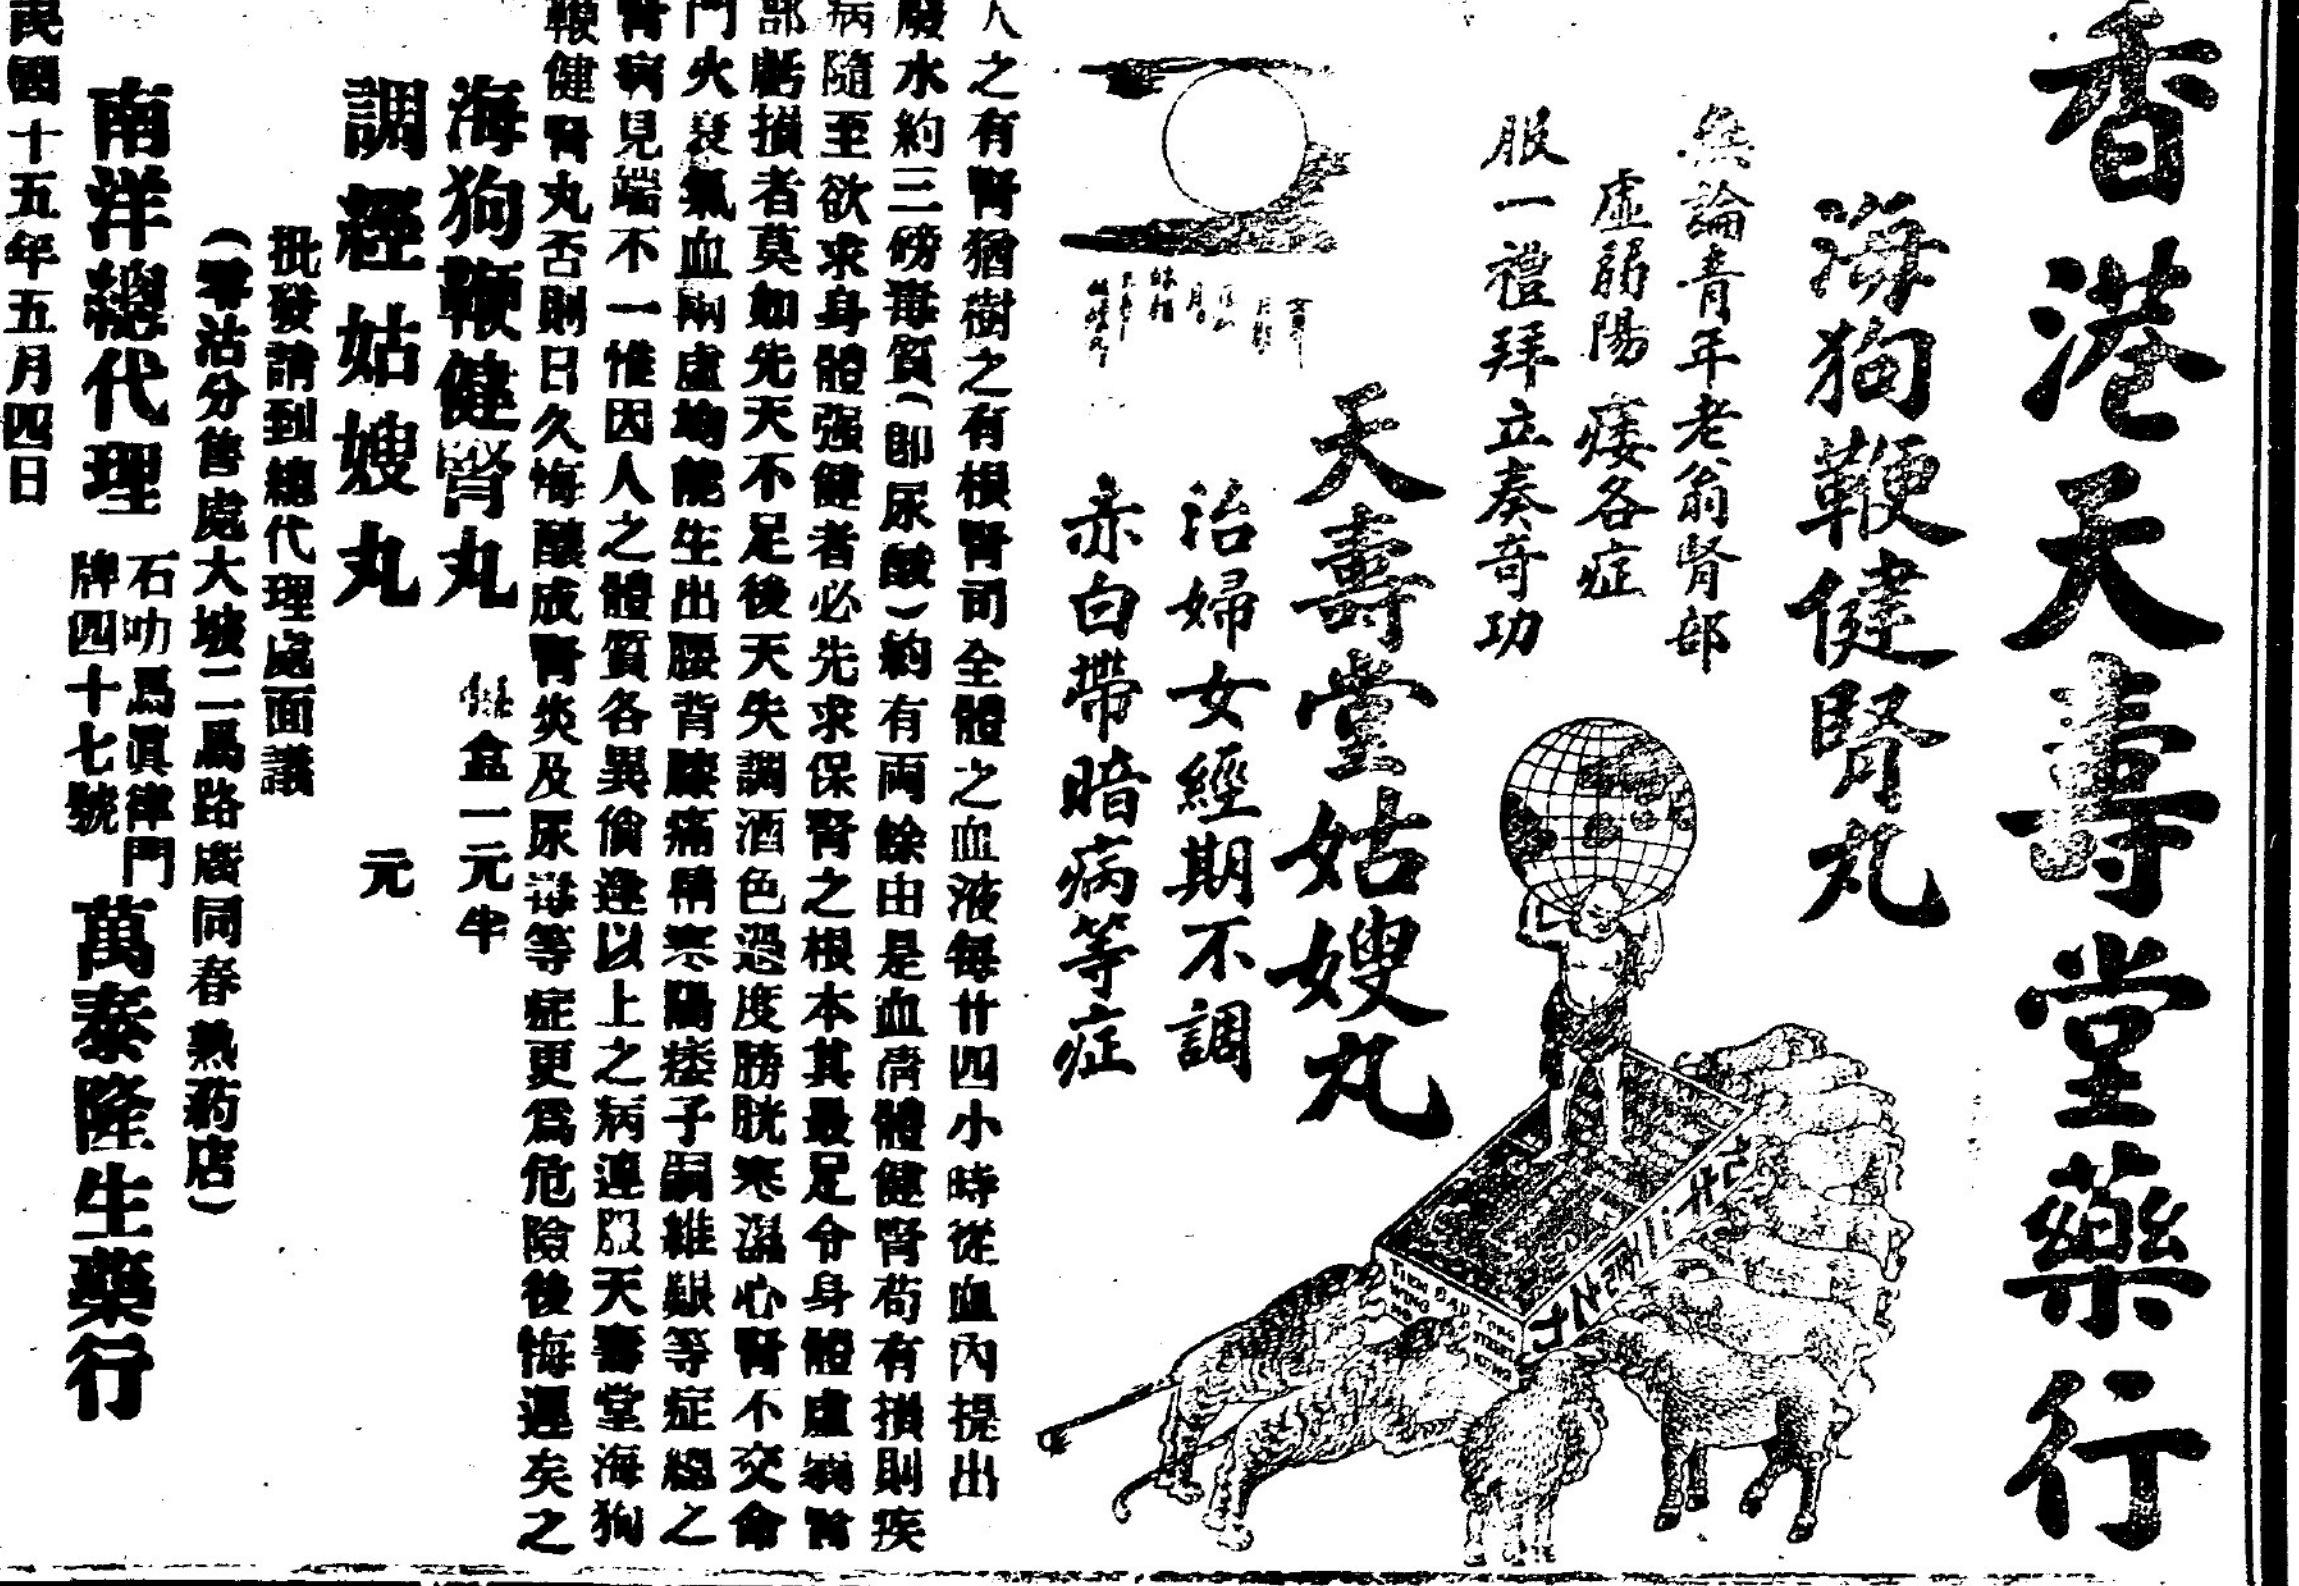 香港天壽堂藥行
海狗鞭健腎丸
無論青年老翁腎部
虛弱陽痿各症
服一禮拜立奏奇功
天壽堂姑嫂丸
治婦女經期不調
赤白帶暗病等症
TIEN SAU TONG
WING STREET
人之有腎猶樹之有根腎司全體之血液每廿四小時從血內提出
廢水約三磅毒質(即尿酸)約有兩餘由是血淸體健腎苟有損則疾
病隨至欲求身體强健者必先求保腎之根本其最足令身體虛弱腎
部虧損者莫如先天不足後天失調酒色過度膀胱寒濕心腎不交命
門火衰氣血兩虛均能生出腰背膝痛精寒陽痿子嗣維艱等症總之
腎病見端不一惟因人之體質各異倘逢以上之病連服天壽堂海狗
鞭健腎丸否則日久悔釀成腎炎及尿毒等症更爲危險後悔遲矣之
海狗鞭健腎丸 盒一元半
調經姑嫂丸 元
批發請到總代理處面議
(零沽分售處大坡二馬路廣同春熟葯店)
南洋總代理 石叻馬眞律門牌四十七號 萬泰隆生藥行
民國十五年五月四日